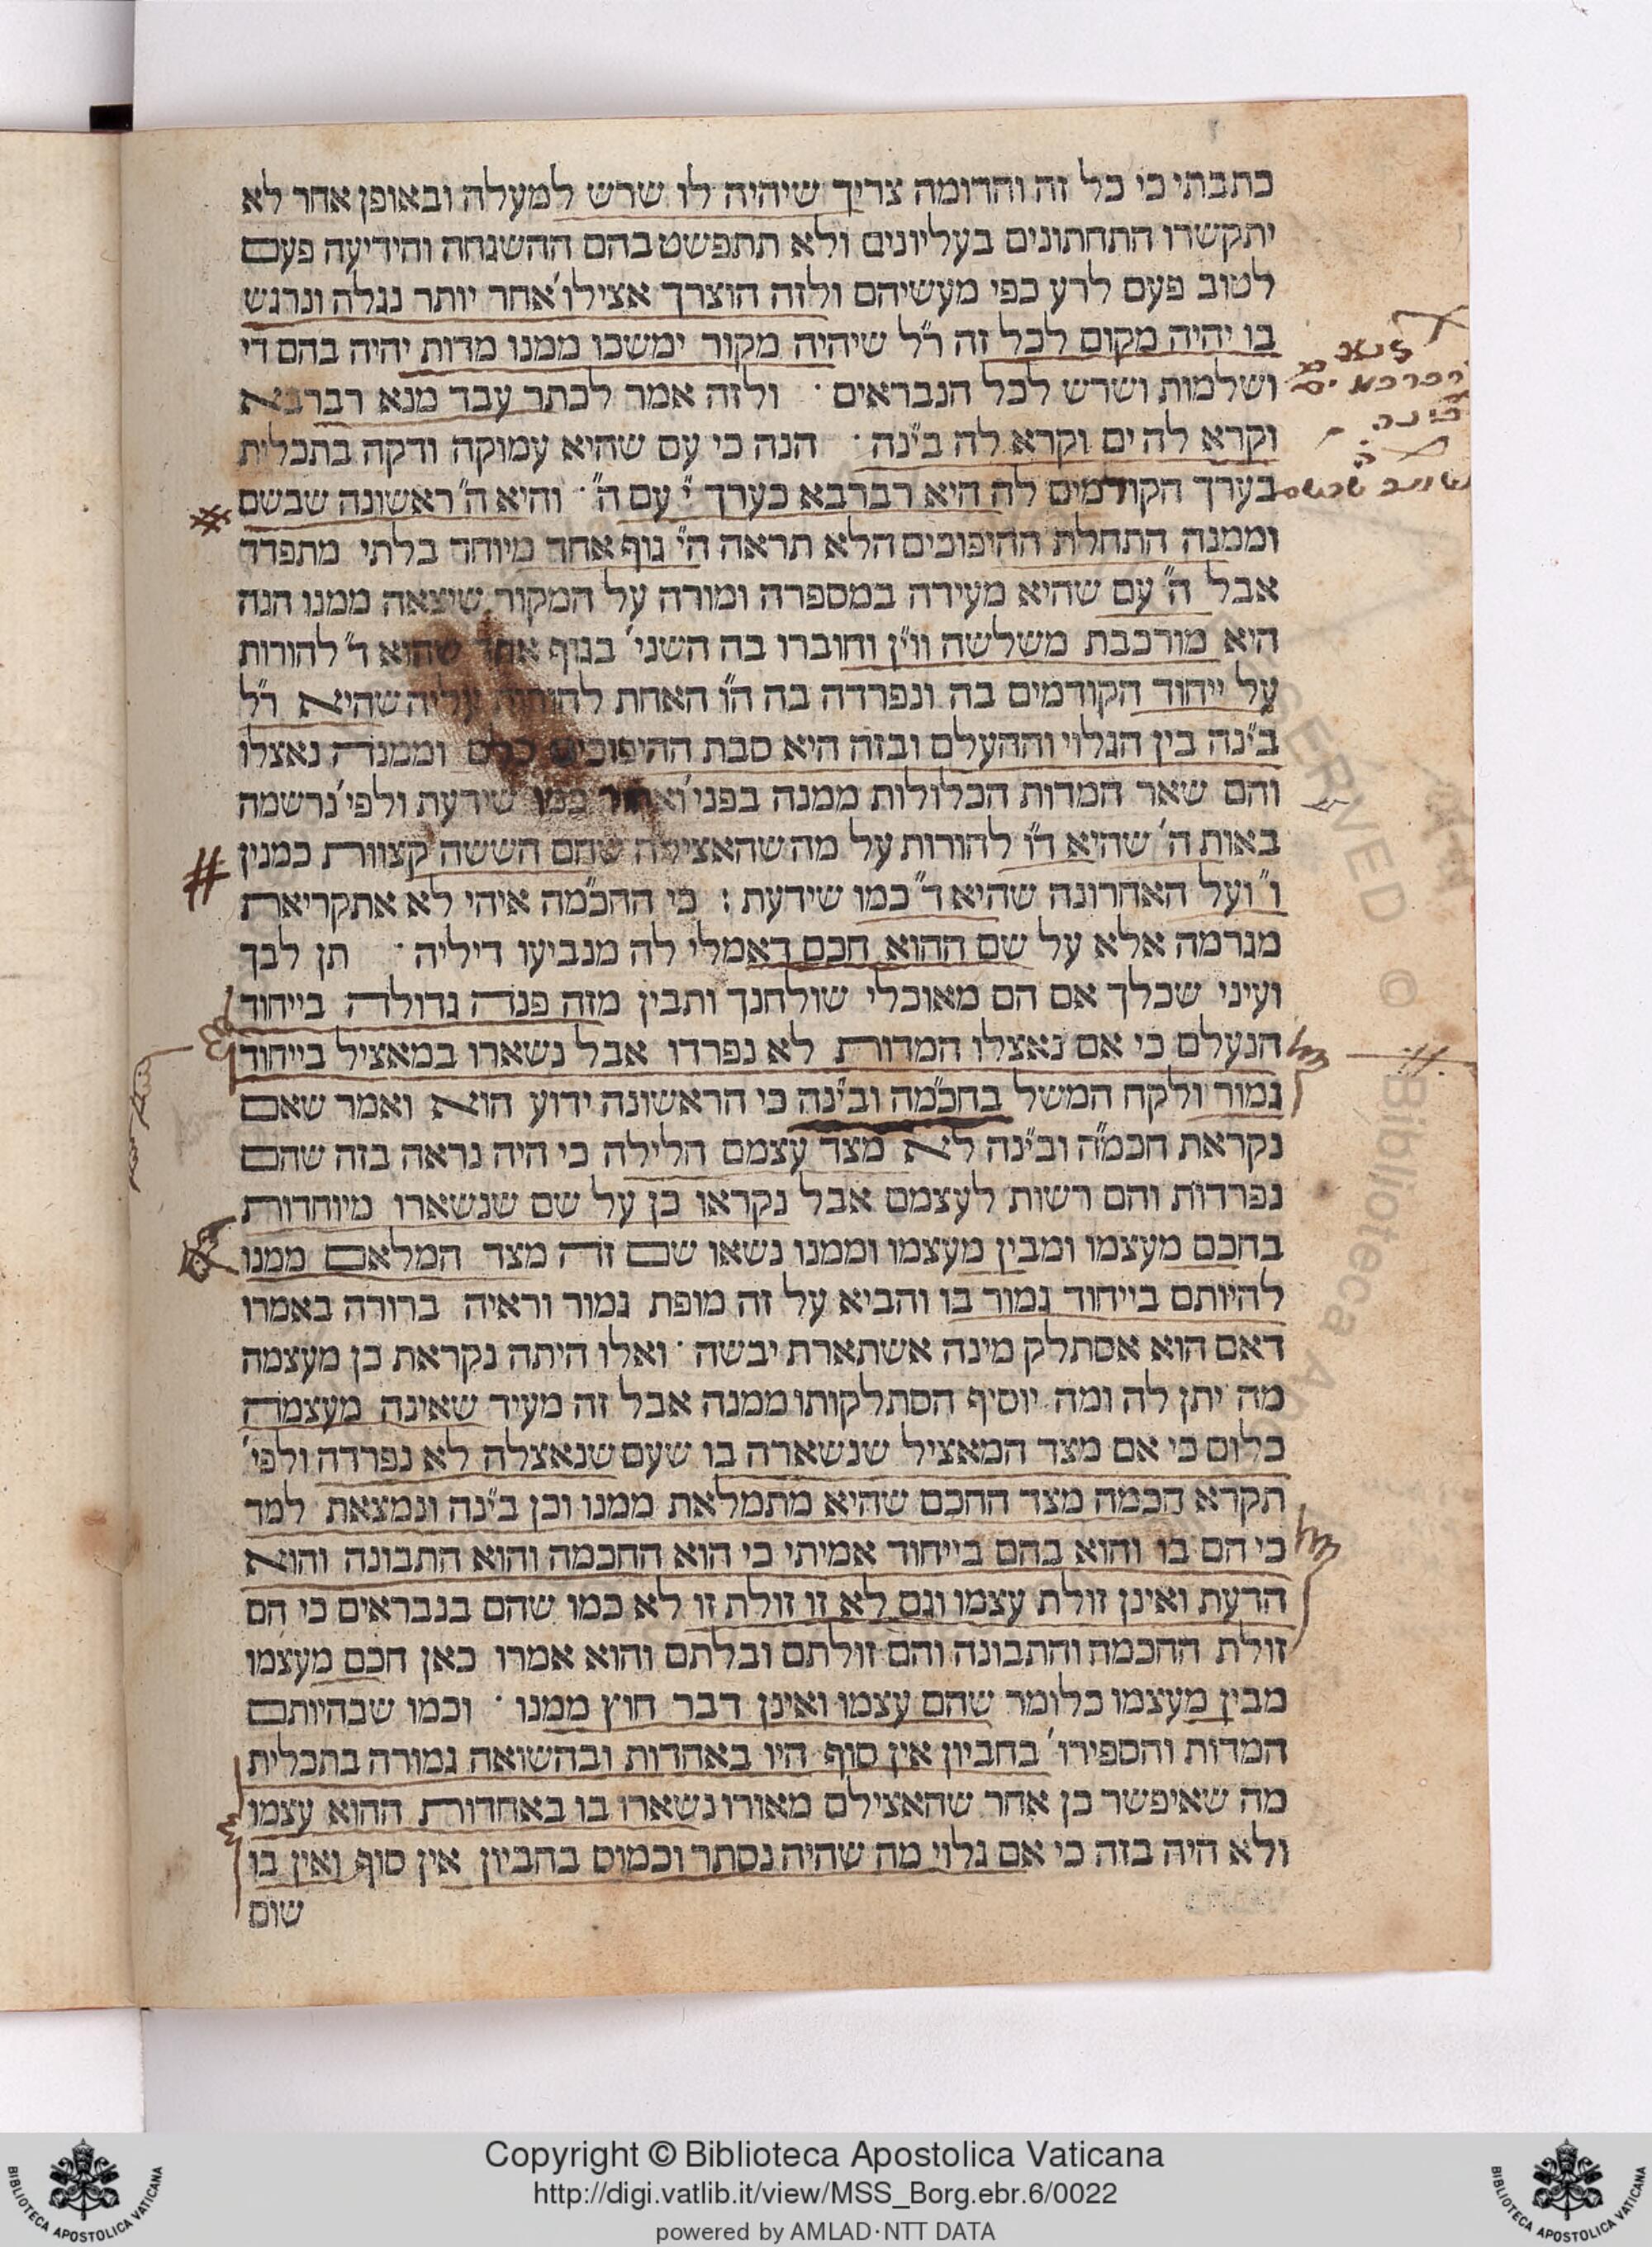 כתבתי כי כל זה והדומה צריך שיהיה לו שרש למעלה ובאופן אחר לא
יתקשרו התחתונים בעליונים ולא תתפשט בהם ההשגחה והידיעה פעם
לטוב פעם לרע כפי מעשיהם ולזה הוצרך אצילו׳ אחר יותר נגלה ונרגש
בו יהיה מקום לכל זה ר״ל שיהיה מקור ימשכו ממנו מדות יהיה בהם די
ושלמות ושרש לכל הנבראים · ולזה אמר לבתר עבד מנא רברבא
וקרא לה ים וקרא לה ב״ינה · הנה כי עם שהיא עמוקה ודקה בתכלית
בערך הקודמים לה היא רברבא כערך י״ עם ה״ · והיא ה״ ראשונה שבשם
וממנה התחלת ההיפוכים הלא תראה הי״ גוף אחד מיוחד בלתי מתפרד
אבל ה״ עם שהיא מעידה במספרה ומורה על המקור שיצאה ממנו הנה
היא מורכבת משלשה ווי״ן וחוברו בה השני׳ בגוף אחד שהוא ד״ להורות
על ייחוד הקודמים בה ונפרדה בה הו״ האחת להורות עליה שהיא ר״ל
ב״ינה בין הגלוי וההעלם ובזה היא סבת ההיפוכים כלם וממנה נאצלו
והם שאר המדות הכלולות ממנה בפני׳ ואחור כמו שידעת ולפי׳ נרשמה
באות ה׳ שהיא ד״ו להורות על מה שהאצילה שהם הששה קצוות כמנין
ו״ ועל האחרונה שהיא ד״ כמו שידעת : כי החכ״מה איהי לא אתקריאת
מגרמה אלא על שם ההוא חכם דאמלי לה מנביעו דיליה · תן לבך
ועיני שכלך אם הם מאוכלי שולחנך ותבין מזה פנה גדולה בייחוד
הנעלם כי אם נאצלו המדות לא נפרדו אבל נשארו במאציל בייחוד
גמור ולקח המשל בחכ״מה וב״ינה כי הראשונה ידוע הוא ואמר שאם
נקראת חכמ״ה וב״ינה לא מצד עצמם חלילה כי היה נראה בזה שהם
נפרדות והם רשות לעצמם אבל נקראו כן על שם שנשארו מיוחדות
בחכם מעצמו ומבין מעצמו וממנו נשאו שם זה מצד המלאם ממנו
להיותם בייחוד גמור בו והביא על זה מופת גמור וראיה ברורה באמרו
דאם הוא אסתלק מינה אשתארת יבשה · ואלו היתה נקראת כן מעצמה
מה יתן לה ומה יוסיף הסתלקותו ממנה אבל זה מעיד שאינה מעצמה
כלום כי אם מצד המאציל שנשארה בו שעם שנאצלה לא נפרדה ולפי׳
תקרא חכמה מצד החכם שהיא מתמלאת ממנו וכן ב״ינה ונמצאת למד
כי הם בו והוא בהם בייחוד אמיתי כי הוא החכמה והוא התבונה והוא
הדעת ואינן זולת עצמו וגם לא זו זולת זו לא כמו שהם בנבראים כי הם
זולת החכמה והתבונה והם זולתם ובלתם והוא אמרו כאן חכם מעצמו
מבין מעצמו כלומר שהם עצמו ואינן דבר חוץ ממנו · וכמו שבהיותם
המדות והספירו׳ בחביון אין סוף היו באחדות ובהשואה גמורה בתכלית
מה שאיפשר כן אחר שהאצילם מאורו נשארו בו באחדות ההוא עצמו
ולא היה בזה כי אם גלוי מה שהיה נסתר וכמוס בחביון אין סוף ואין בו
שום
בינה
Copyright © Biblioteca Apostolica Vaticana
http://digi.vatlib.it/view/MSS_Borg.ebr.6/0022
powered by AMLAD·NTT DATA
BIBLIOTECA APOSTOLICA VATICANA
BIBLIOTECA APOSTOLICA VATICANA